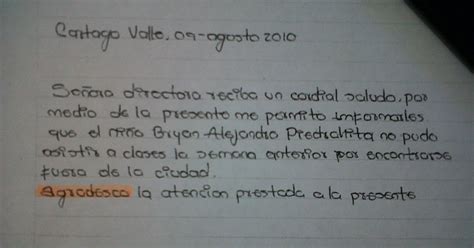 Cartago Valle. 09-agosto 2010
Señora directora reciba un cordial saludo, por
medio de la presente me permito informarles
que el niño Bryan Alejandro Piedrahita no pudo
asistir a clases la semana anterior por encontrarse
fuera de la ciudad.
Agradesco la atencion prestada a la presente